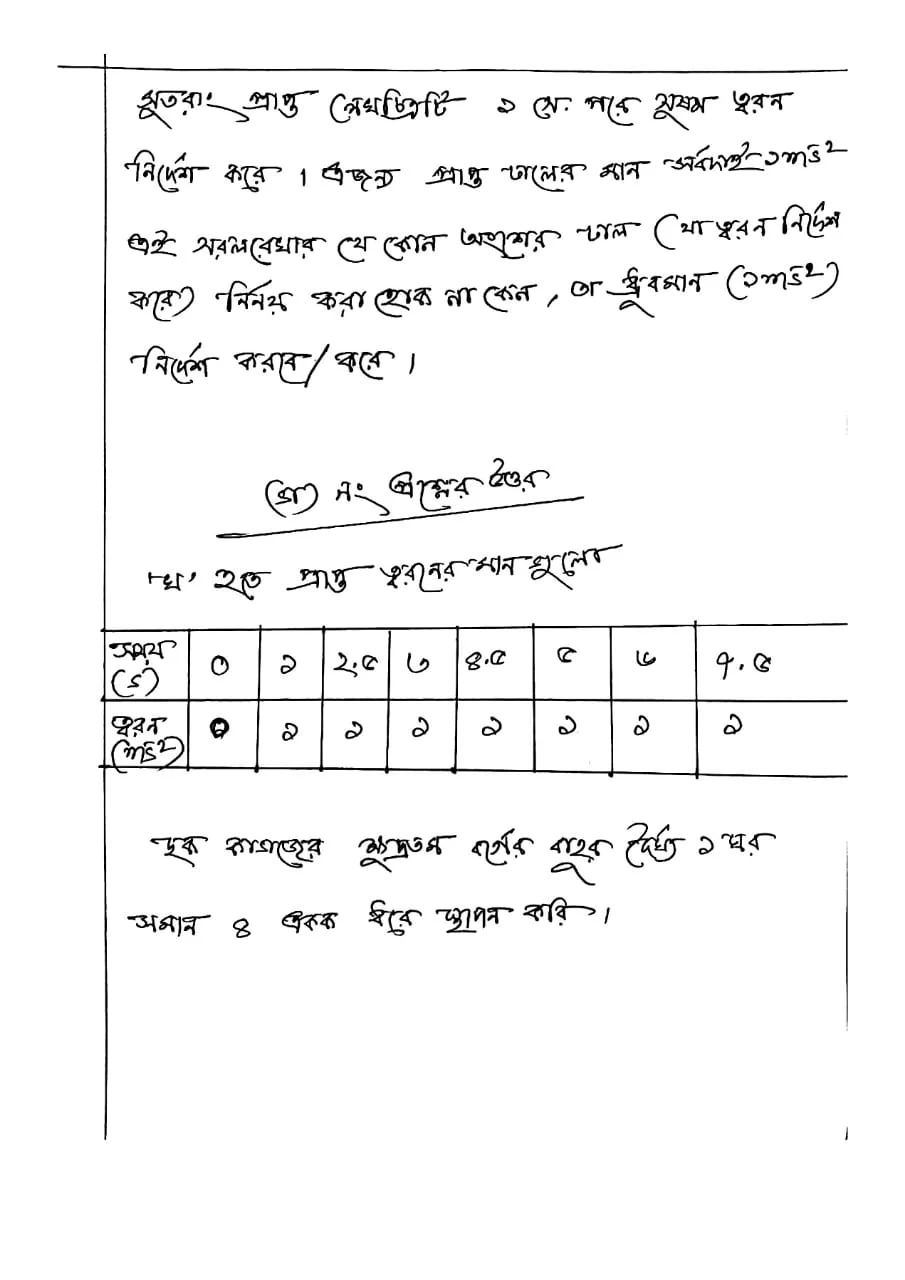 সুতরাং প্রাপ্ত লেখচিত্রটি ১ সে. পরে সুষম ত্বরন
নির্দেশ করে । এজন্য প্রাপ্ত ঢালের মান সর্বদাই ১ms⁻²
এই সরলরেখার যে কোন অংশের ঢাল (যা ত্বরন নির্দেশ
করে) নির্নয় করা হোক না কেন, তা ধ্রুবমান (১ms⁻²)
নির্দেশ করবে/করে ।
নং প্রশ্নের উত্তর
'খ' হতে প্রাপ্ত ত্বরনের মানগুলো
সময় (s) ০ ১ ২.৫ ৩ ৪.৫ ৫ ৬ ৭.৫
ত্বরন (ms⁻²) ০ ১ ১ ১ ১ ১ ১ ১
ছক কাগজের ক্ষুদ্রতম বর্গের বাহুর দৈর্ঘ্য ১ ঘর
সমান ৪ একক ধরে স্থাপন করি ।